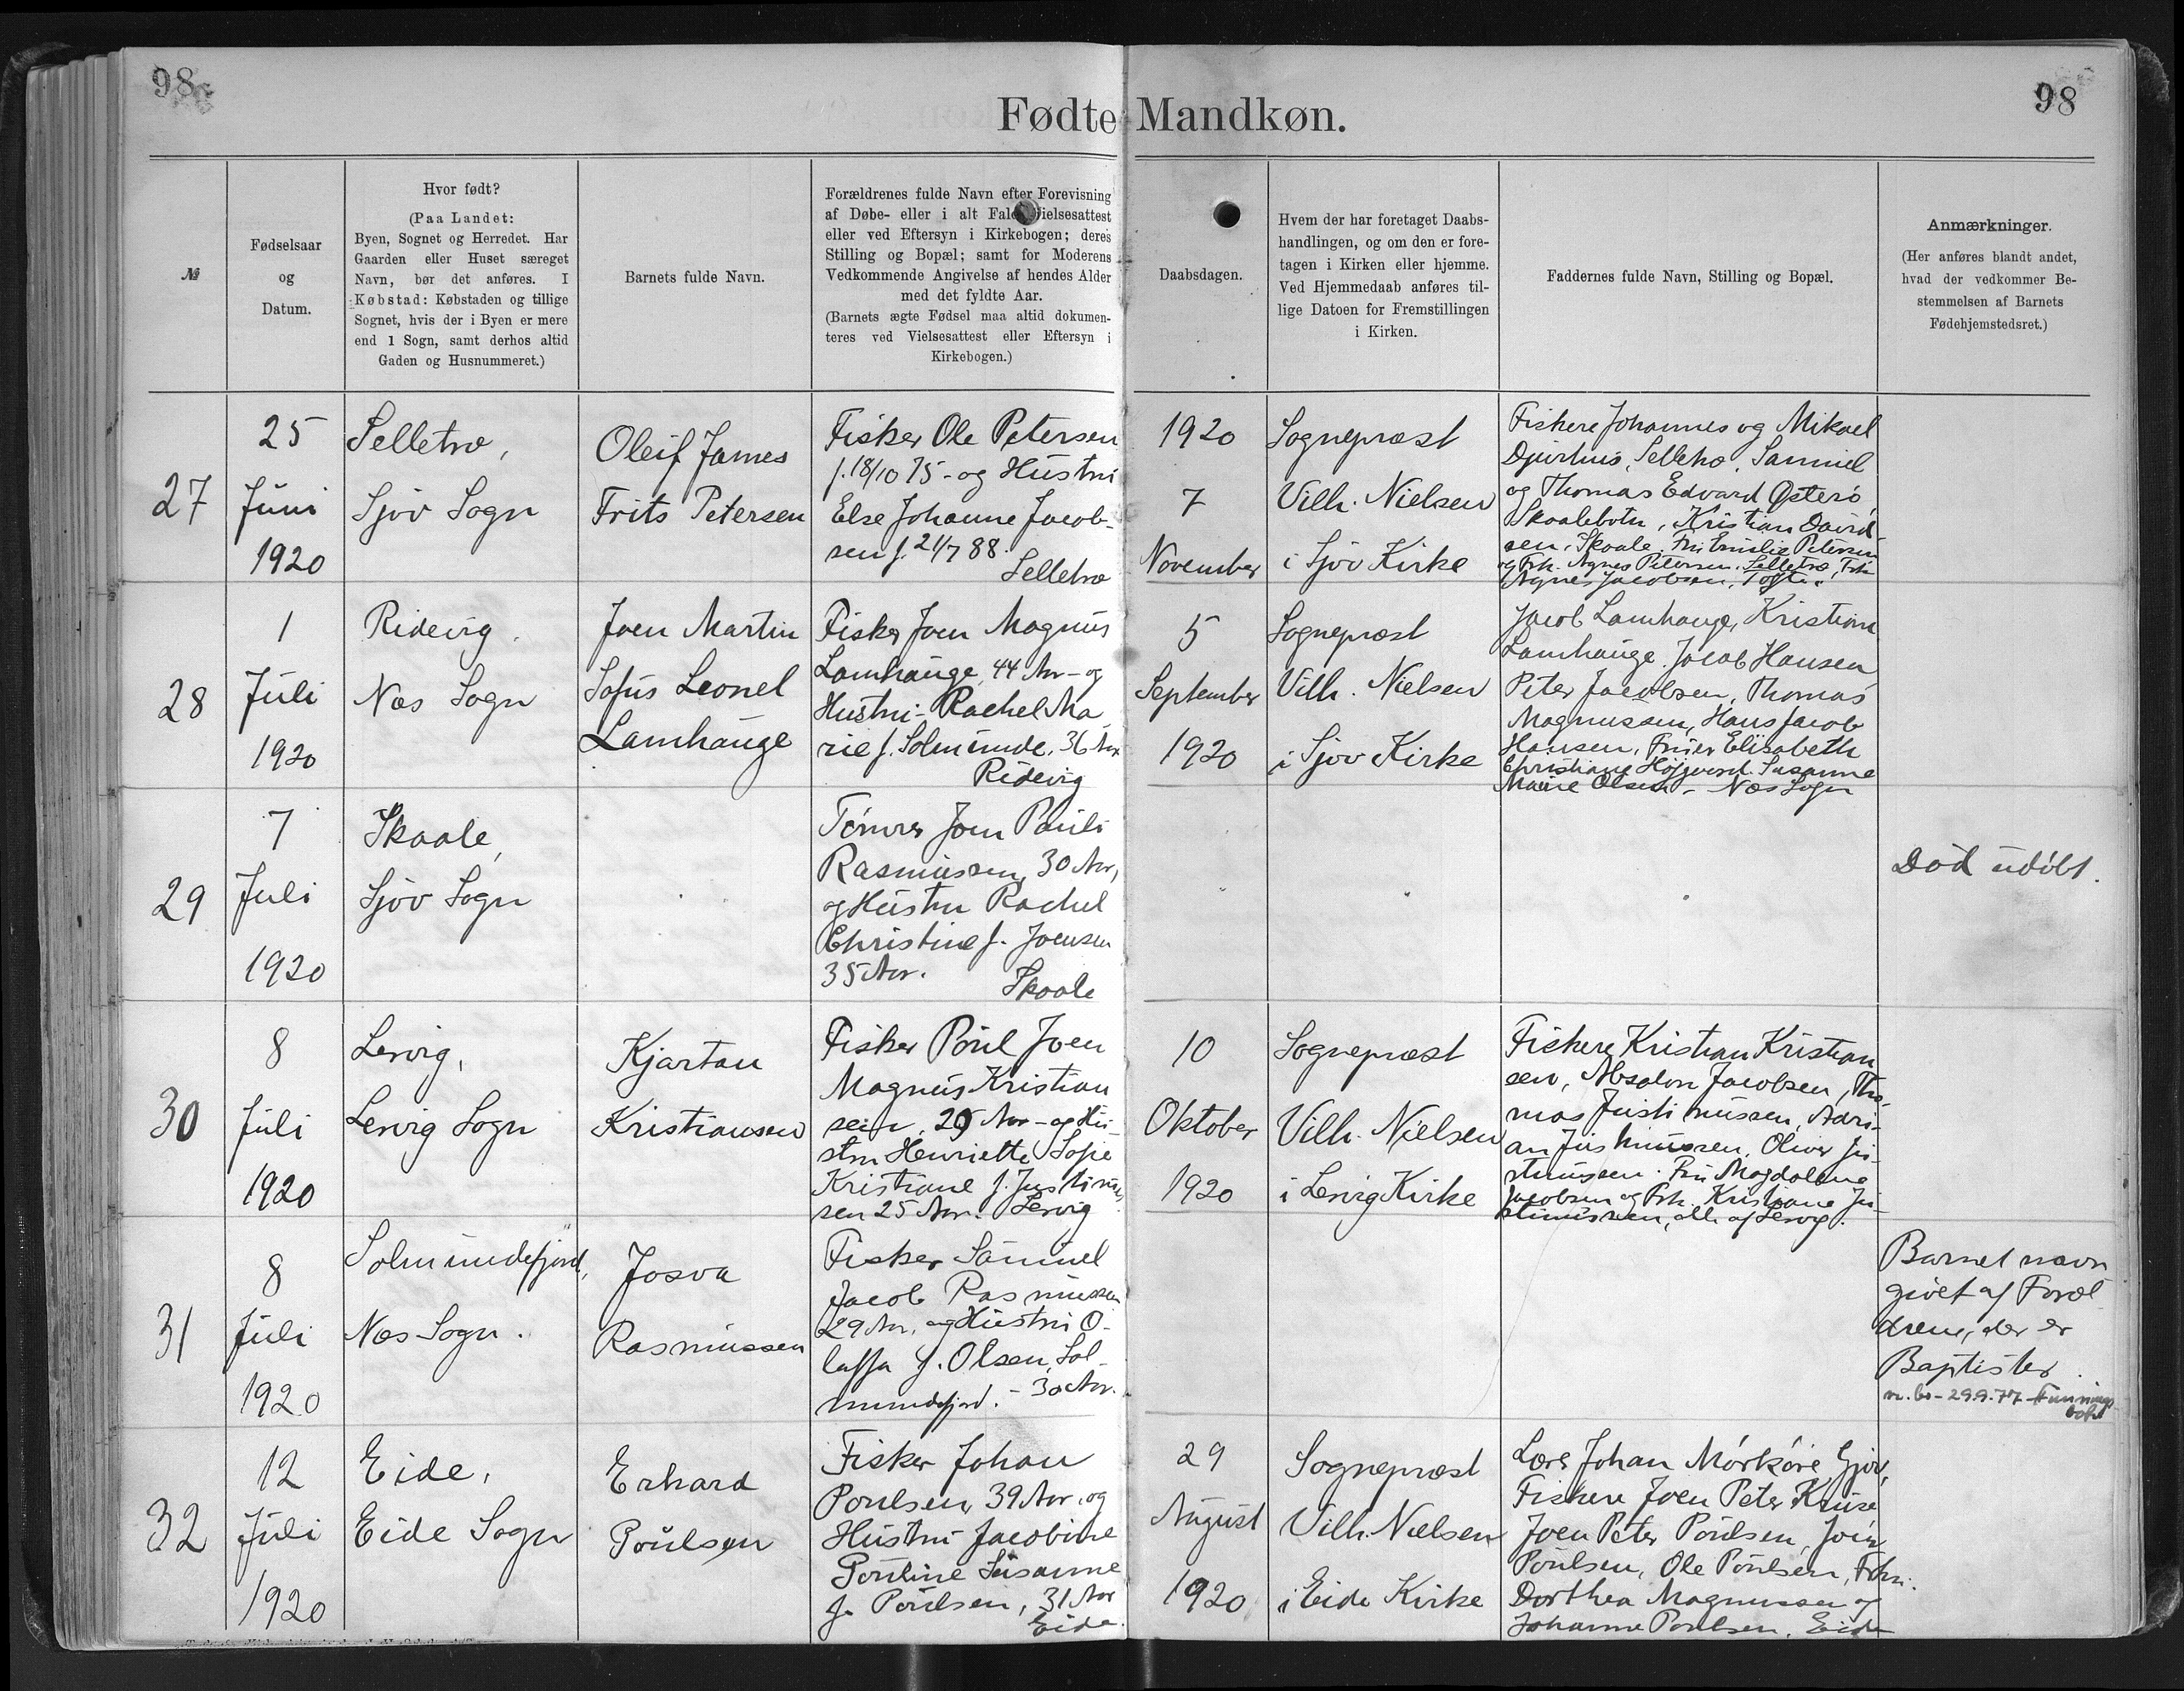 98
98
Fødte Mandkøn.
№
Fødselsaar
og
Datum.
Hvor født?
(Paa Landet:
Byen, Sognet og Herredet. Har
Gaarden eller Huset særeget
Navn, bør det anføres. I
Købstad: Købstaden og tillige
Sognet, hvis der i Byen er mere
end 1 Sogn, samt derhos altid
Gaden og Husnummeret.)
Barnets fulde Navn.
Forældrenes fulde Navn efter Forevisning
af Døbe- eller i alt Fald Vielsesattest
eller ved Eftersyn i Kirkebogen; deres
Stilling og Bopæl; samt for Moderens
Vedkommende Angivelse af hendes Alder
med det fyldte Aar.
(Barnets ægte Fødsel maa altid dokumen-
teres ved Vielsesattest eller Eftersyn i
Kirkebogen.)
Daabsdagen.
Hvem der har foretaget Daabs-
handlingen, og om den er fore-
tagen i Kirken eller hjemme.
Ved Hjemmedaab anføres til-
lige Datoen for Fremstillingen
i Kirken.
Faddernes fulde Navn, Stilling og Bopæl.
Anmærkninger.
(Her anføres blandt andet,
hvad der vedkommer Be-
stemmelsen af Barnets
Fødehjemstedsret.)
27
25
Juni
1920
Selletræ,
Sjov Sogn
Oleif James
Frits Petersen
Fisker Ole Petersen
f. 18/10 75 - og Hustru
Else Johanne Jacob-
sen f. 21/7 88.
Selletræ
1920
7
November
Sognepræst
Vilh. Nielsen
i Sjov Kirke
Fiskere Johannes og Mikael
Djurhus, Selletræ, Samuel
og Thomas Edvard Østerø,
Skaalebotn, Kristian David-
sen, Skaale, Fru Emilie Petersen
og Frk. Agnes Petersen, Selletræ, Frk
Agnes Jacobsen, Tofte.
28
1
Juli
1920
Ridevig.
Næs Sogn
Joen Martin
Sofus Leonel
Lamhauge
Fisker Joen Magnus
Lamhauge, 44 Aar - og
Hustru - Rachel Ma-
rie f. Solmunde, 36 Aar
Ridevig
5
September
1920
Sognepræst
Vilh. Nielsen
i Sjov Kirke
Jacob Lamhauge, Kristian
Lamhauge. Jacob Hansen
Peter Jacobsen, Thomas
Magnussen, Hans Jacob
Hansen, Fruer Elisabeth
Christiane Højgaard. Susanne
Marie Olsen - Næs Sogn
29
7
Juli
1920
Skaale,
Sjov Sogn
Tømrer Joen Pauli
Rasmussen, 30 Aar,
og Hustru Rachel
Christine f. Joensen
35 Aar.
Skaale
Død udøbt.
30
8
Juli
1920
Lervig,
Lervig Sogn
Kjartan
Kristiansen
Fisker Poul Joen
Magnus Kristian
sen, 29 Aar - og Hu-
stru Henriette Sofie
Kristiane f. Justinus
sen 25 Aar. Lervig
10
Oktober
1920
Sognepræst
Vilh. Nielsen
i Lervig Kirke
Fiskere Kristian Kristian
sen, Absalon Jacobsen, Tho-
mas Justinussen, Adri-
an Justinussen, Oliver Ju-
stinussen. Fru Magdalene
Jacobsen og Frk. Kristiane Ju-
stinussen, alle af Lervig.
31
8
Juli
1920
Solmundefjord,
Næs Sogn.
Josva
Rasmussen
Fisker Samuel
Jacob Rasmussen
29 Aar, og Hustru O-
laffa f. Olsen, Sol-
mundefjord. - 30 Aar.
Barnet navn
givet af Foræl
drene, der er
Baptister.
32
12
Juli
1920
Eide,
Eide Sogn
Erhard
Poulsen
Fisker Johan
Poulsen, 39 Aar, og
Hustru Jacobine
Pouline Susanne
f. Poulsen, 31 Aar
Eide.
29
August
1920
Sognepræst
Vilh. Nielsen
i Eide Kirke
Lærer Johan Mørkøre Gjov,
Fiskere Joen Peter Kruse
Joen Peter Poulsen, Join
Poulsen, Ole Poulsen, Frkn.
Dorthea Magnussen og
Johanne Poulsen, Eide